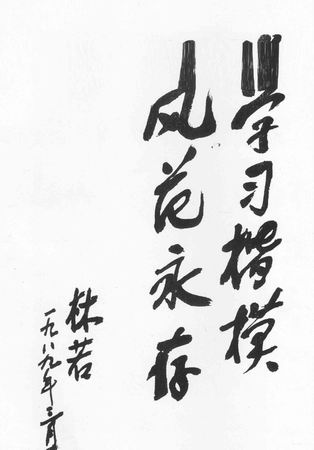 学习楷模
风范永存
林若
一九八九年三月